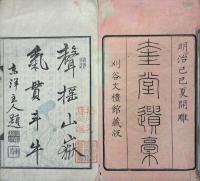 明治己巳夏開雕
奎堂遺稾
刈谷文禮館藏版
聲 山嶽
氣貫斗牛
主人題